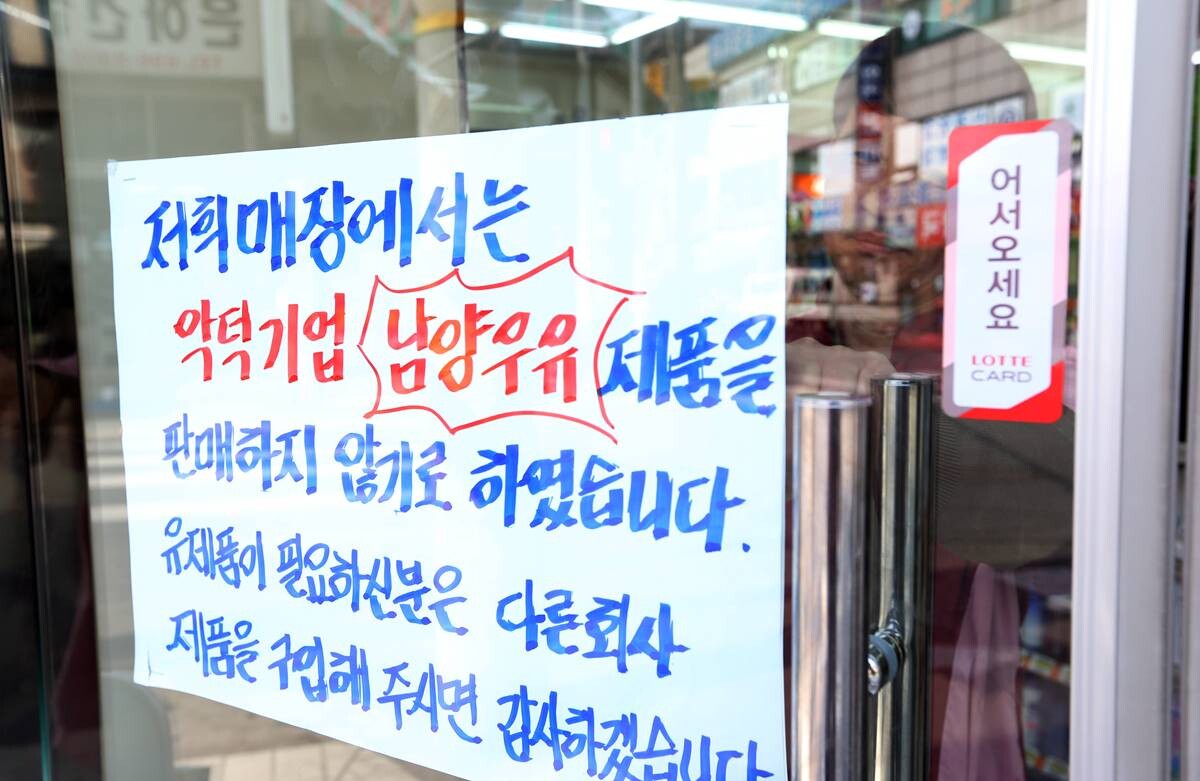 저희매장에서는
악덕기업 남양우유 제품을
판매하지 않기로 하였습니다.
유제품이 필요하신분은 다른회사
제품을 구입해 주시면 감사하겠습니다
어서오세요
LOTTE
CARD